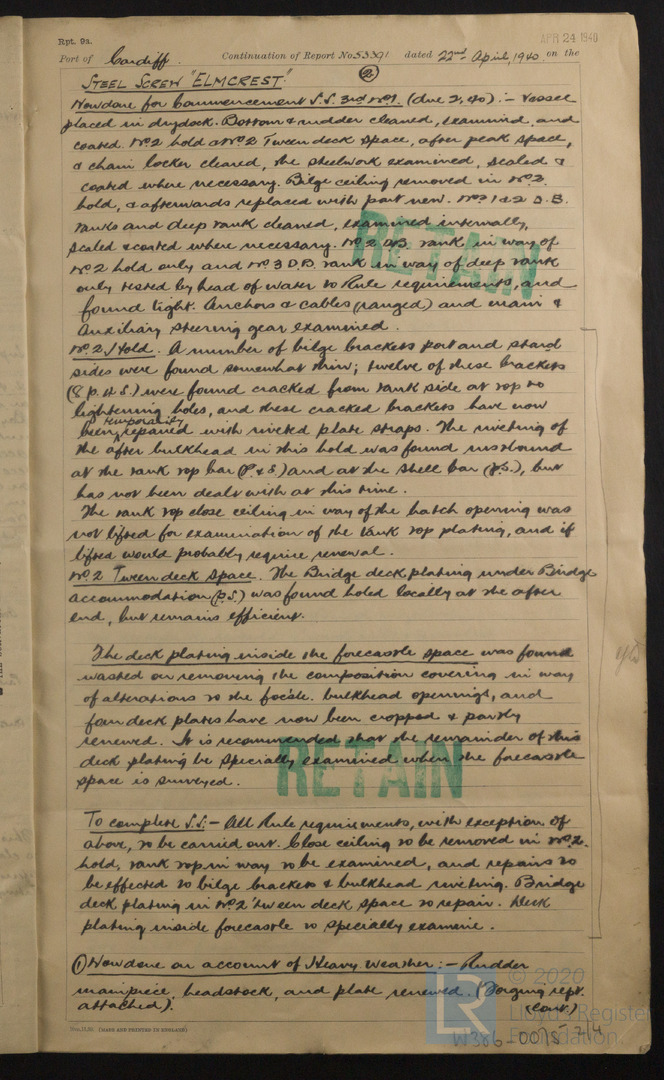 Rpt. 9a.
APR 24 1940
Port of Cardiff. Continuation of Report No. 53391 dated 22nd April, 1940 on the
(2)
STEEL SCREW "ELMCREST."
Now done for Commencement S.S. 3rd No 1. (due 2,40) :- Vessel
placed in drydock. Bottom & rudder cleaned, examined, and
coated. No 2 hold & No 2 Tween deck space, after peak space,
& chain locker cleared, the steelwork examined, scaled &
coated where necessary. Bilge ceiling removed in No 2.
hold, & afterwards replaced with part new. Nos 1 & 2 D.B.
tanks and deep tank cleaned, examined internally,
scaled & coated where necessary. No 2 D.B. tank in way of
No 2 hold only and No 3 D.B. tank in way of deep tank
only tested by head of water to Rule requirements, and
found tight. Anchors & cables (ranged) and main &
auxiliary steering gear examined.
No. 2 Hold. A number of bilge brackets port and starbd
sides were found somewhat thin; twelve of these brackets
(8 p. 4 S.) were found cracked from tank side at top to
lightening holes, and these cracked brackets have now
temporarily
been repaired with riveted plate straps. The riveting of
the after bulkhead in this hold was found unsound
at the tank top bar (P & S.) and at the shell bar (p.S.), but
has not been dealt with at this time.
The tank top close ceiling in way of the hatch opening was
not lifted for examination of the tank top plating, and if
lifted would probably require renewal.
No. 2 Tween deck space. The Bridge deck plating under Bridge
accommodation (p.S.) was found holed locally at the after
end, but remains efficient.
The deck plating inside the forecastle space was found
wasted on removing the composition covering in way
of alterations to the foc'sle. bulkhead openings, and
four deck plates have now been cropped & partly
renewed. It is recommended that the remainder of this
deck plating be specially examined when the forecastle
space is surveyed.
To complete S.S:- All Rule requirements, with exception of
above, to be carried out. Close ceiling to be removed in No 2.
hold, tank top in way to be examined, and repairs to
be effected to bilge brackets & bulkhead riveting. Bridge
deck plating in No 2 'tween deck space to repair. Deck
plating inside forecastle to specially examine.
(1) Now done on account of Heavy Weather:- Rudder
mainpiece, headstock, and plate renewed. (Forging rept.
attached). (Cont.)
RETAIN
RETAIN
(MADE AND PRINTED IN ENGLAND)
© 2020
LR
Lloyd's Register
Foundation
W386-0015 2/4